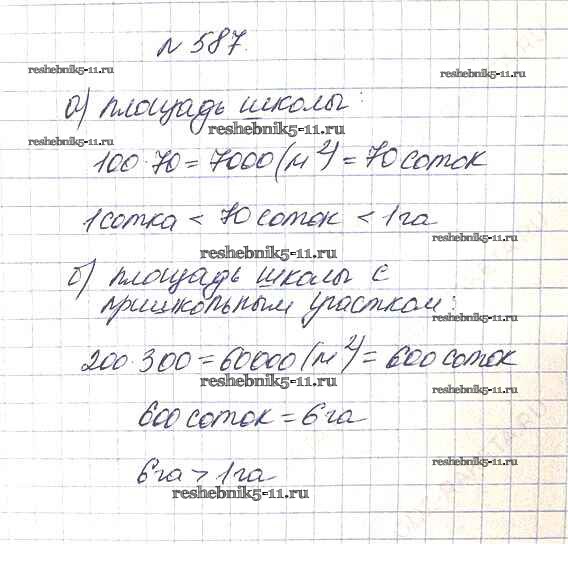 № 587.
reshebnik5-11.ru reshebnik5-11.ru
а) площадь школы:
reshebnik5-11.ru
reshebnik5-11.ru
100·70 = 7000 (м²) = 70 соток
1 сотка < 70 соток < 1 га
reshebnik5-11.ru
б) площадь школы с
пришкольным участком:
reshebnik5-11.ru
200·300 = 60000 (м²) = 600 соток
reshebnik5-11.ru reshebnik5-11.ru
600 соток = 6 га
6 га > 1 га
reshebnik5-11.ru
reshebnik5-11.ru